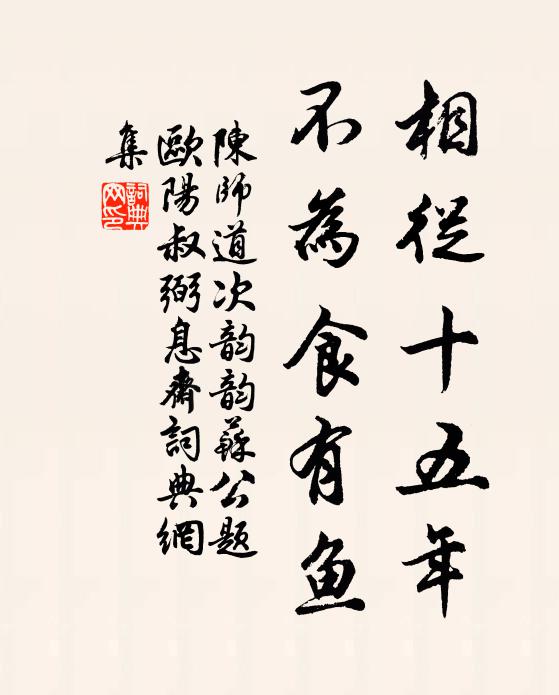 相從十五年
不為食有魚
陳師道次韵韵蘇公題
歐陽叔弼息齋詞典網
集
詞典网印